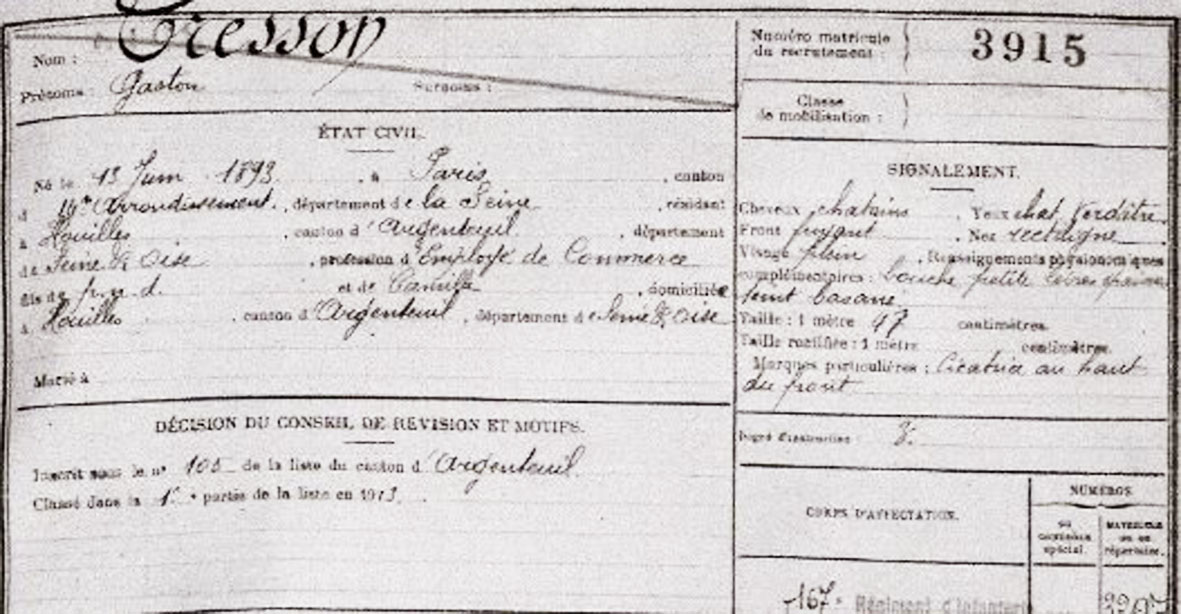 Nom : Tresson
Prénoms : Gaston Surnoms :
Numéro matricule
du recrutement : 3915
Classe
de mobilisation :
ÉTAT CIVIL.
Né le 13 Juin 1893, à Paris, canton
d 14e Arrondissement, département de la Seine, résidant
à Houilles, canton d'Argenteuil, département
de Seine & Oise, profession d'Employé de Commerce
fils de f.n.d. et de Camille, domiciliée
à Houilles, canton d'Argenteuil, département de Seine & Oise
Marié à
DÉCISION DU CONSEIL DE RÉVISION ET MOTIFS.
Inscrit sous le n° 105 de la liste du canton d'Argenteuil
Classé dans la 1e partie de la liste en 1913.
SIGNALEMENT.
Cheveux chatains, Yeux chat. verdâtre
Front fuyant, Nez rectiligne
Visage plein, Renseignements physionomiques
complémentaires : bouche petite
teint basané
Taille : 1 mètre 47 centimètres.
Taille rectifiée : 1 mètre centimètres.
Marques particulières : Cicatrice au haut
du front
Degré d'instruction : 3.
CORPS D'AFFECTATION.
NUMÉROS
au
contrôle
spécial.
MATRICULE
ou au
répertoire.
167e Régiment d'Infanterie